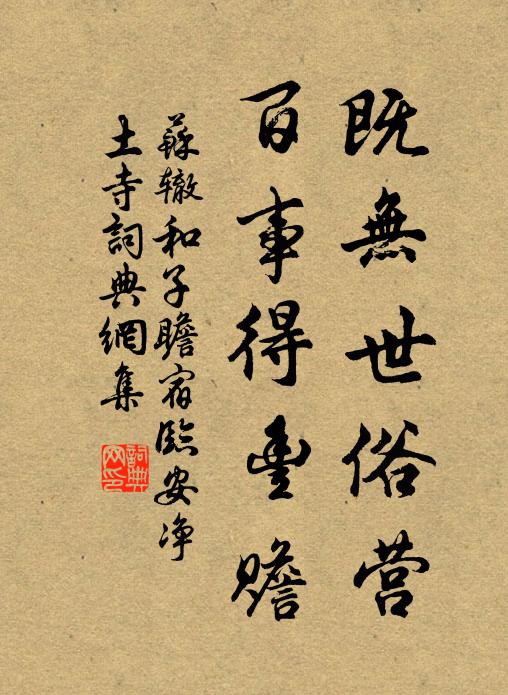 既無世俗营
百事得豊贍
蘇辙和子瞻宿臨安净
土寺詞典網集
詞典
网印